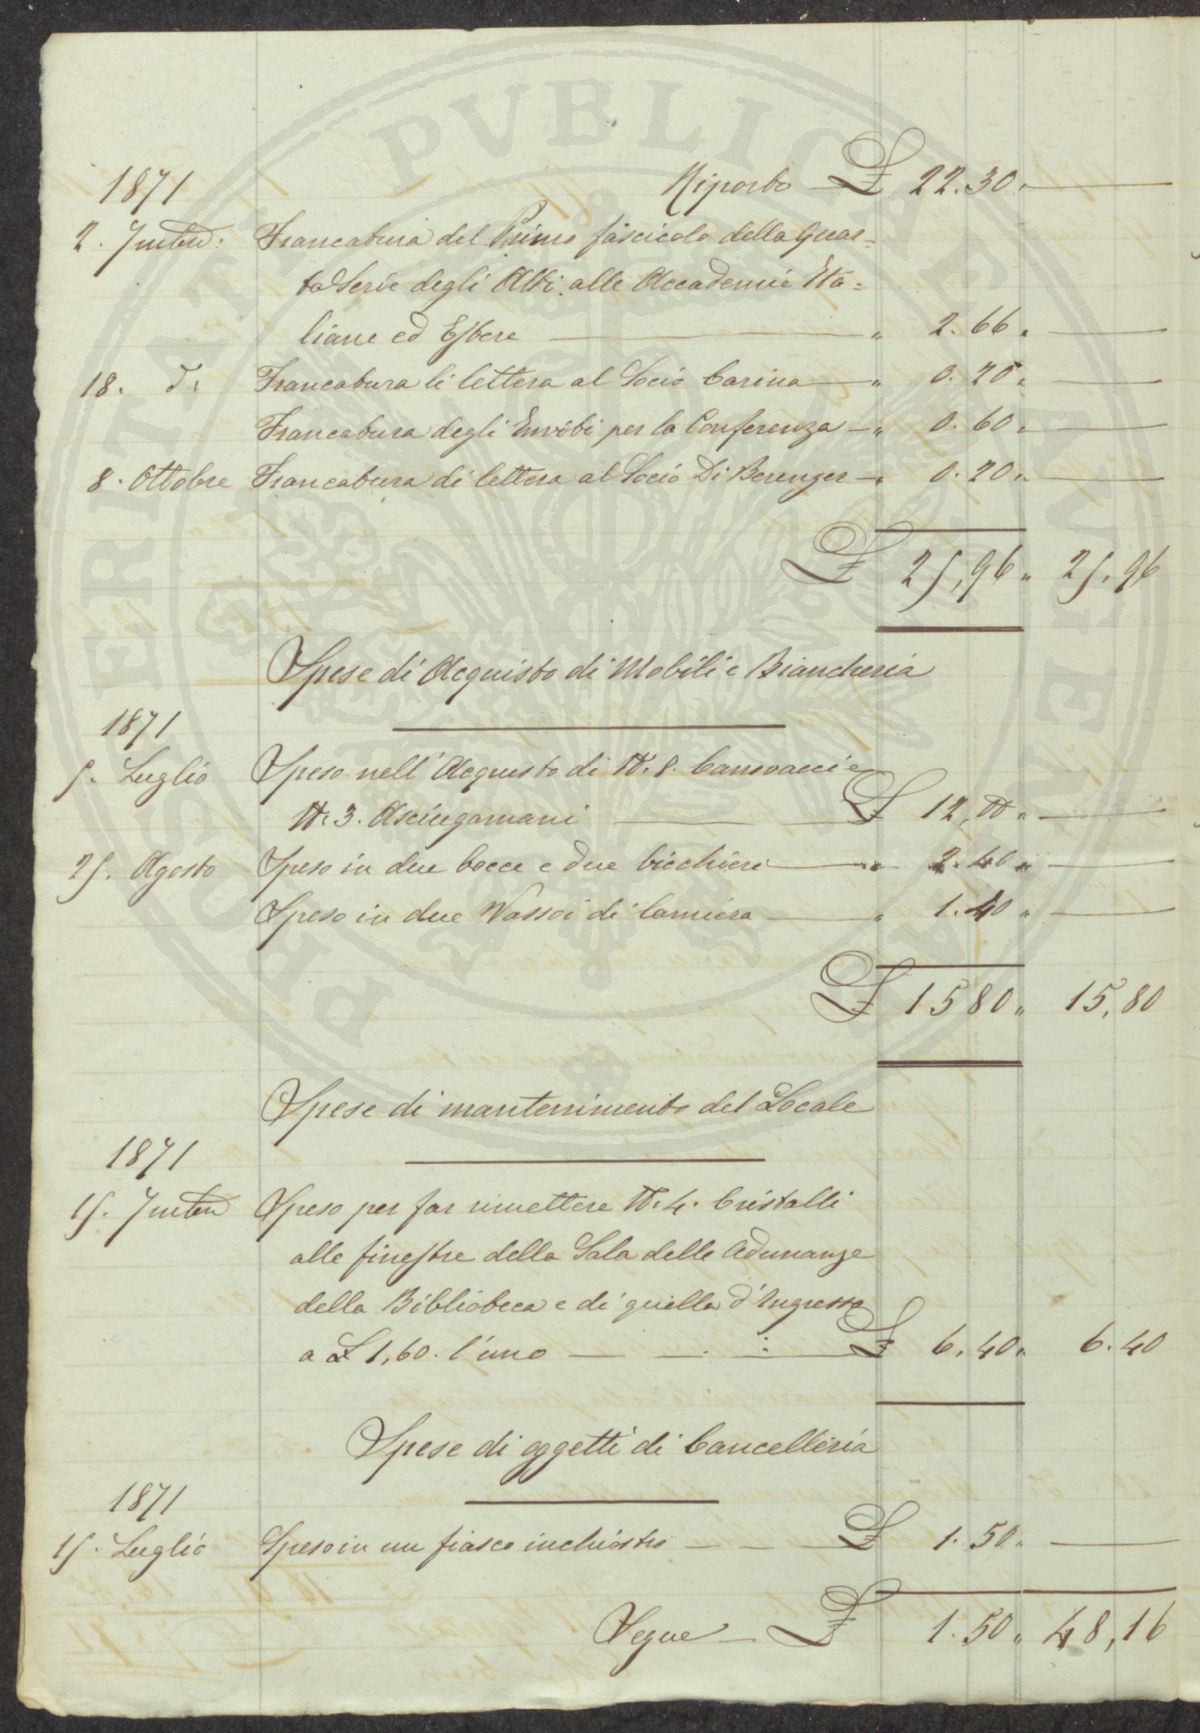 1871 Riporto £ 22.30. 
2. 7mbre: Francatura del Primo fascicolo della Quar=
ta Serie degli Atti, alle Accademie Ita=
liane ed Estere " 2.66 "
18. d. Francatura di lettera al Socio Carina " 0.20 "
Francatura degli Inviti per la Conferenza " 0.60 "
8. Ottobre Francatura di lettera al Socio Di Berenger " 0.20 "
£ 25,96 " 25,96
Spese di Acquisto di Mobili e Biancheria
1871
5. Luglio Speso nell'Acquisto di N. 8. Canovacci e
N. 3. Asciugamani £ 12,00 "
25. Agosto Speso in due bocce e due bicchieri " 2.40 "
Speso in due Vassoi di lamiera " 1.40 "
£ 15 80 " 15,80
Spese di mantenimento del Locale
1871
15. 7mbre Speso per far rimettere N. 4. Cristalli
alle finestre della Sala delle Adunanze
della Biblioteca e di quella d'Ingresso
a £ 1,60. l'uno £ 6.40 " 6.40
Spese di oggetti di Cancelleria
1871
15. Luglio Speso in un fiasco inchiostro £ 1.50 "
Segue £ 1.50 " 48,16